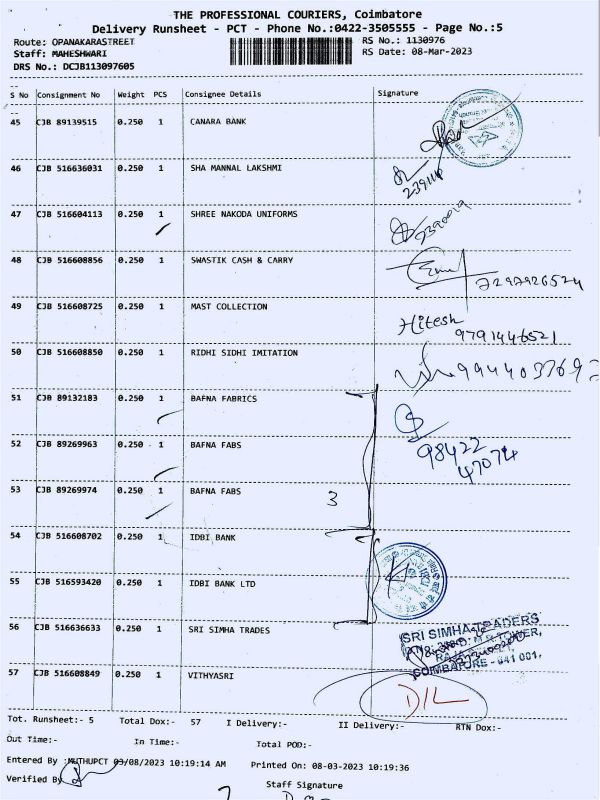 THE PROFESSIONAL COURIERS, Coimbatore
Delivery Runsheet - PCT - Phone No.:0422-3505555 - Page No.:5
Route: OPANAKARASTREET RS No.: 1130976
Staff: MAHESHWARI RS Date: 08-Mar-2023
DRS No.: DCJB113097605
S No Consignment No Weight PCS Consignee Details Signature
45 CJB 89139515 0.250 1 CANARA BANK
46 CJB 516636031 0.250 1 SHA MANNAL LAKSHMI
47 CJB 516604113 0.250 1 SHREE NAKODA UNIFORMS
48 CJB 516608856 0.250 1 SWASTIK CASH & CARRY
7297926524
49 CJB 516608725 0.250 1 MAST COLLECTION
Hitesh
9791446521
50 CJB 516608850 0.250 1 RIDHI SIDHI IMITATION
51 CJB 89132183 0.250 1 BAFNA FABRICS
52 CJB 89269963 0.250 1 BAFNA FABS
98422
47074
53 CJB 89269974 0.250 1 BAFNA FABS
3
54 CJB 516608702 0.250 1 IDBI BANK
55 CJB 516593420 0.250 1 IDBI BANK LTD
56 CJB 516636633 0.250 1 SRI SIMHA TRADES
SRI SIMHA TRADERS
TOWER,
COIMBATORE - 641 001.
57 CJB 516608849 0.250 1 VITHYASRI
D/L
Tot. Runsheet:- 5 Total Dox:- 57 I Delivery:- II Delivery:- RTN Dox:-
Out Time:- In Time:- Total POD:-
Entered By :MUTHUPCT 03/08/2023 10:19:14 AM Printed On: 08-03-2023 10:19:36
Verified By
Staff Signature